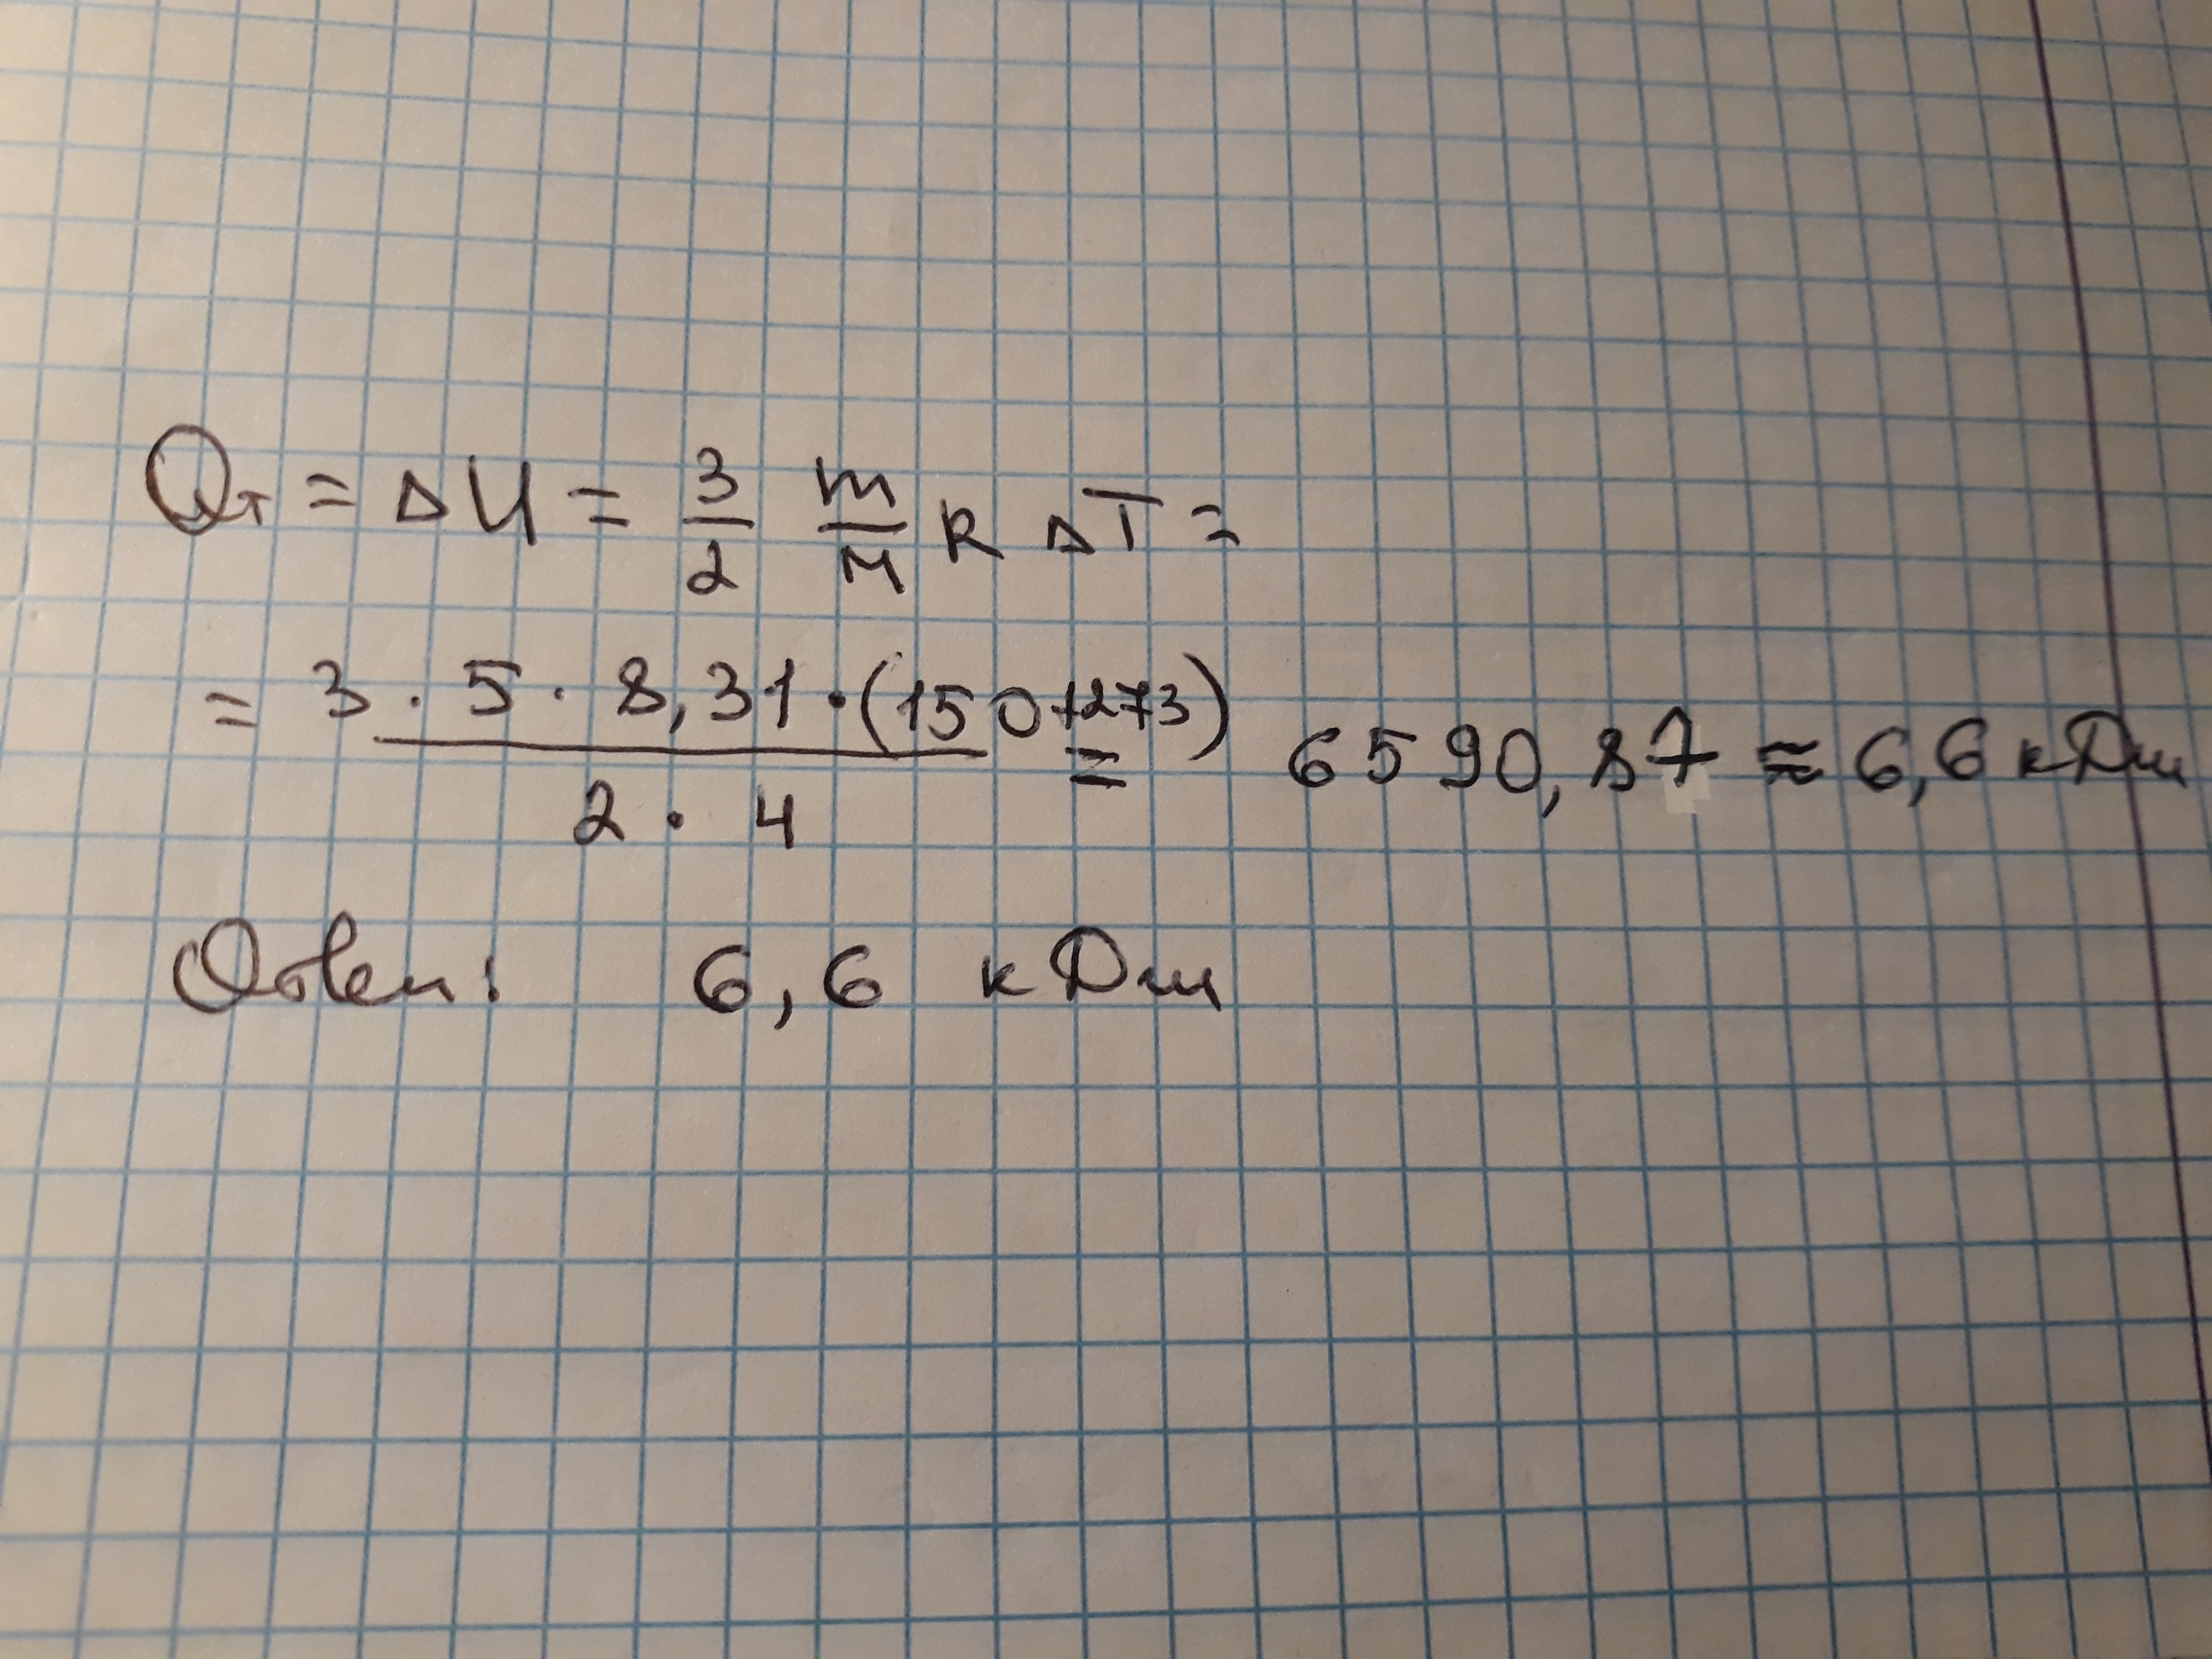 Qт = ΔU = 3/2 m/M R ΔT =
= 3 · 5 · 8,31 · (150+273) / 2 · 4 = 6590,87 ≈ 6,6 кДж
Ответ: 6,6 кДж